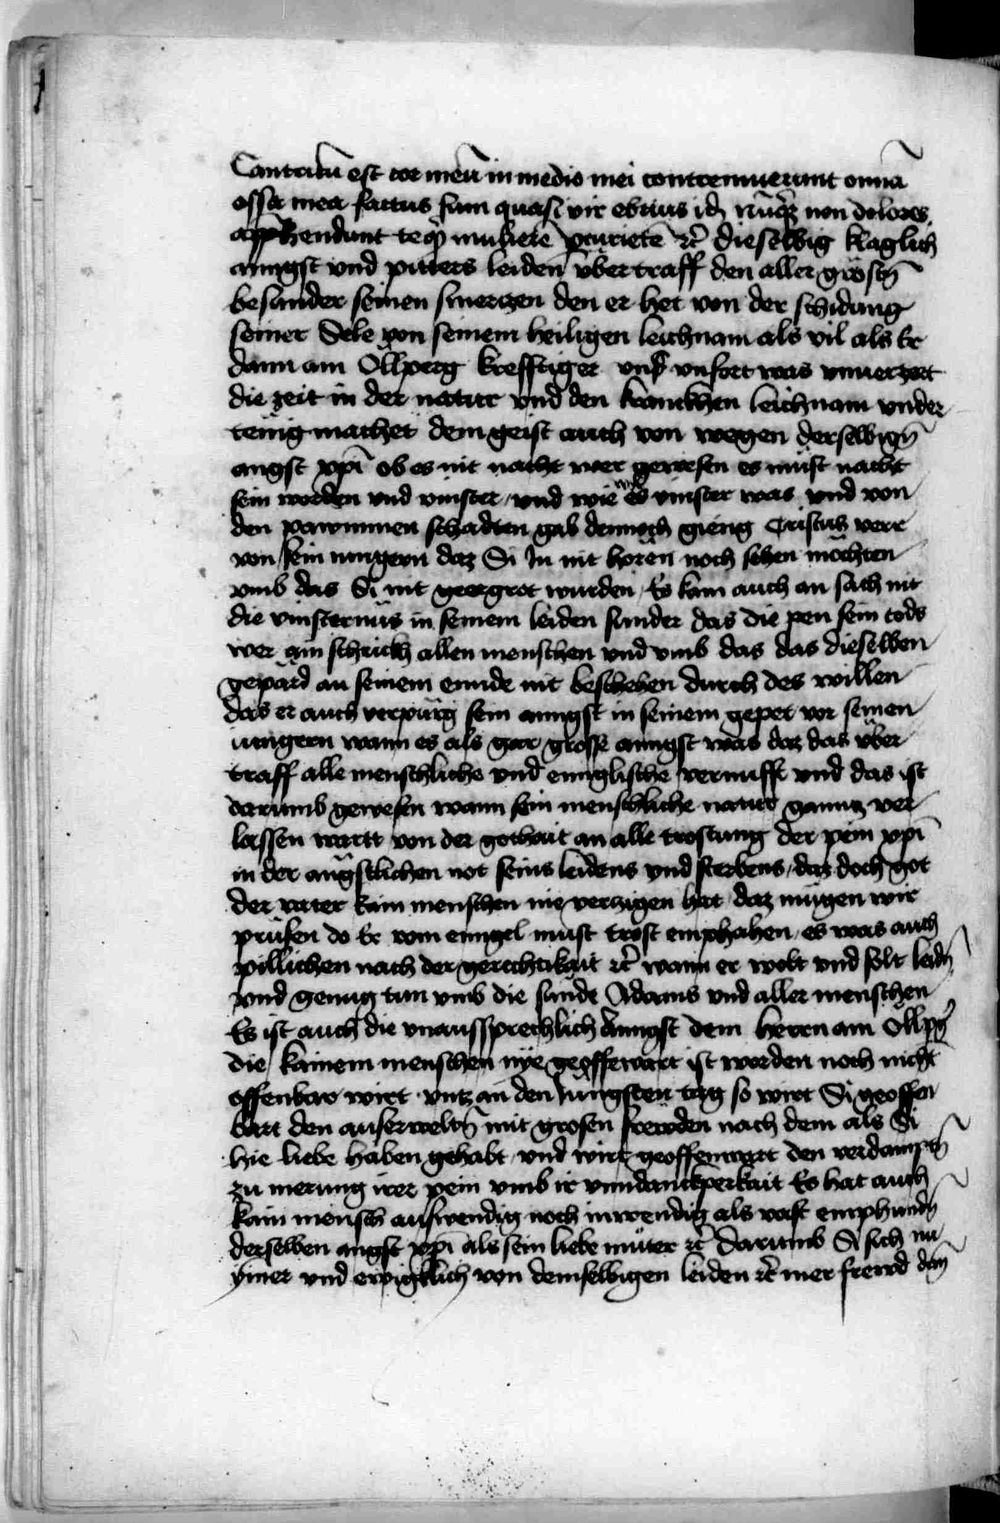 Contritū est cor meū in medio mei contremuerunt om̄ia
ossa mea factus sum quasi vir ebrius id nūq̄ non dolores
apphendent te mulierē pturietē rc̄ dieselbig klaglich
anngst vnd pitters leiden vbertraff den aller grösten
besunder seinen smertzen den er het von der schidung
seiner Sele von seinem heiligen leichnam als vil als Er
dann am Ollperg krefftiger vnd vnfort was vnuerzert
die zeit in der natur vnd den kranckhen leichnam vnder
tenig machet dem geist auch von wegen derselbign̄
angst xp̄i ob es nit nacht wer gewesen es müst nacht
sein worden vnd vinster / vnd wie wol es vinster was vnd von
den pawmmen schadten gab dennoch gieng Cristus verr
von sein iungern daz Si In nit hören noch sehen möchten
vmb das Si nit geergret wurden / Es kam auch an sach nit
die vinsternus in seinem leiden sunder das die pen sein tods
wer ain schrickh allen menschen vnd vmb das das dieselben
gepärd an seinem ennde nit beschehen durch des willen
das er auch verpürg sein anngst in seinem gepet vor seinen
iungern wann es als gar grosse anngst was daz das über
traff alle menschliche vndennglische vernufft vnd das ist
darumb gewesen wann sein menschliche natur gannz ver
lassen wartt von der gothait an alle trostung der pein xp̄i
in der angstlichen not seins leidens vnd sterbens / daz doch got
der vater kain menschen nie verzigen hat / daz mügen wir
prüfen do Er vom enngel must trost emphahen / es was auch
pillichen nach der gerechtikait rc̄ wann er wolt vnd solt leidn̄
vnd genug tun vmb die sünde Adams vnd aller menschen
Es ist auch die vnaussprechlich Anngst dem herrn am Ollpḡ
die kainem menschen nye geoffenwart ist worden noch nicht
offenbar wirt vntz an den Jungsten tag so wirt Si geoffen
bart den auserweltn̄ mit grosen frewden nach dem als Si
hie liebe haben gehabt / vnd wirt geoffenwart den verdamptn̄
zu merung irer pein vmb ir vnndanckperkait Es hat auch
kain mensch auswendig noch inwendig als vast emphundn̄
derselben angst xp̄i als sein liebe müter rc̄ darumb Si sich nu
ymer vnd ewigklich von demselbigen leiden rc̄ mer frewd dan̄